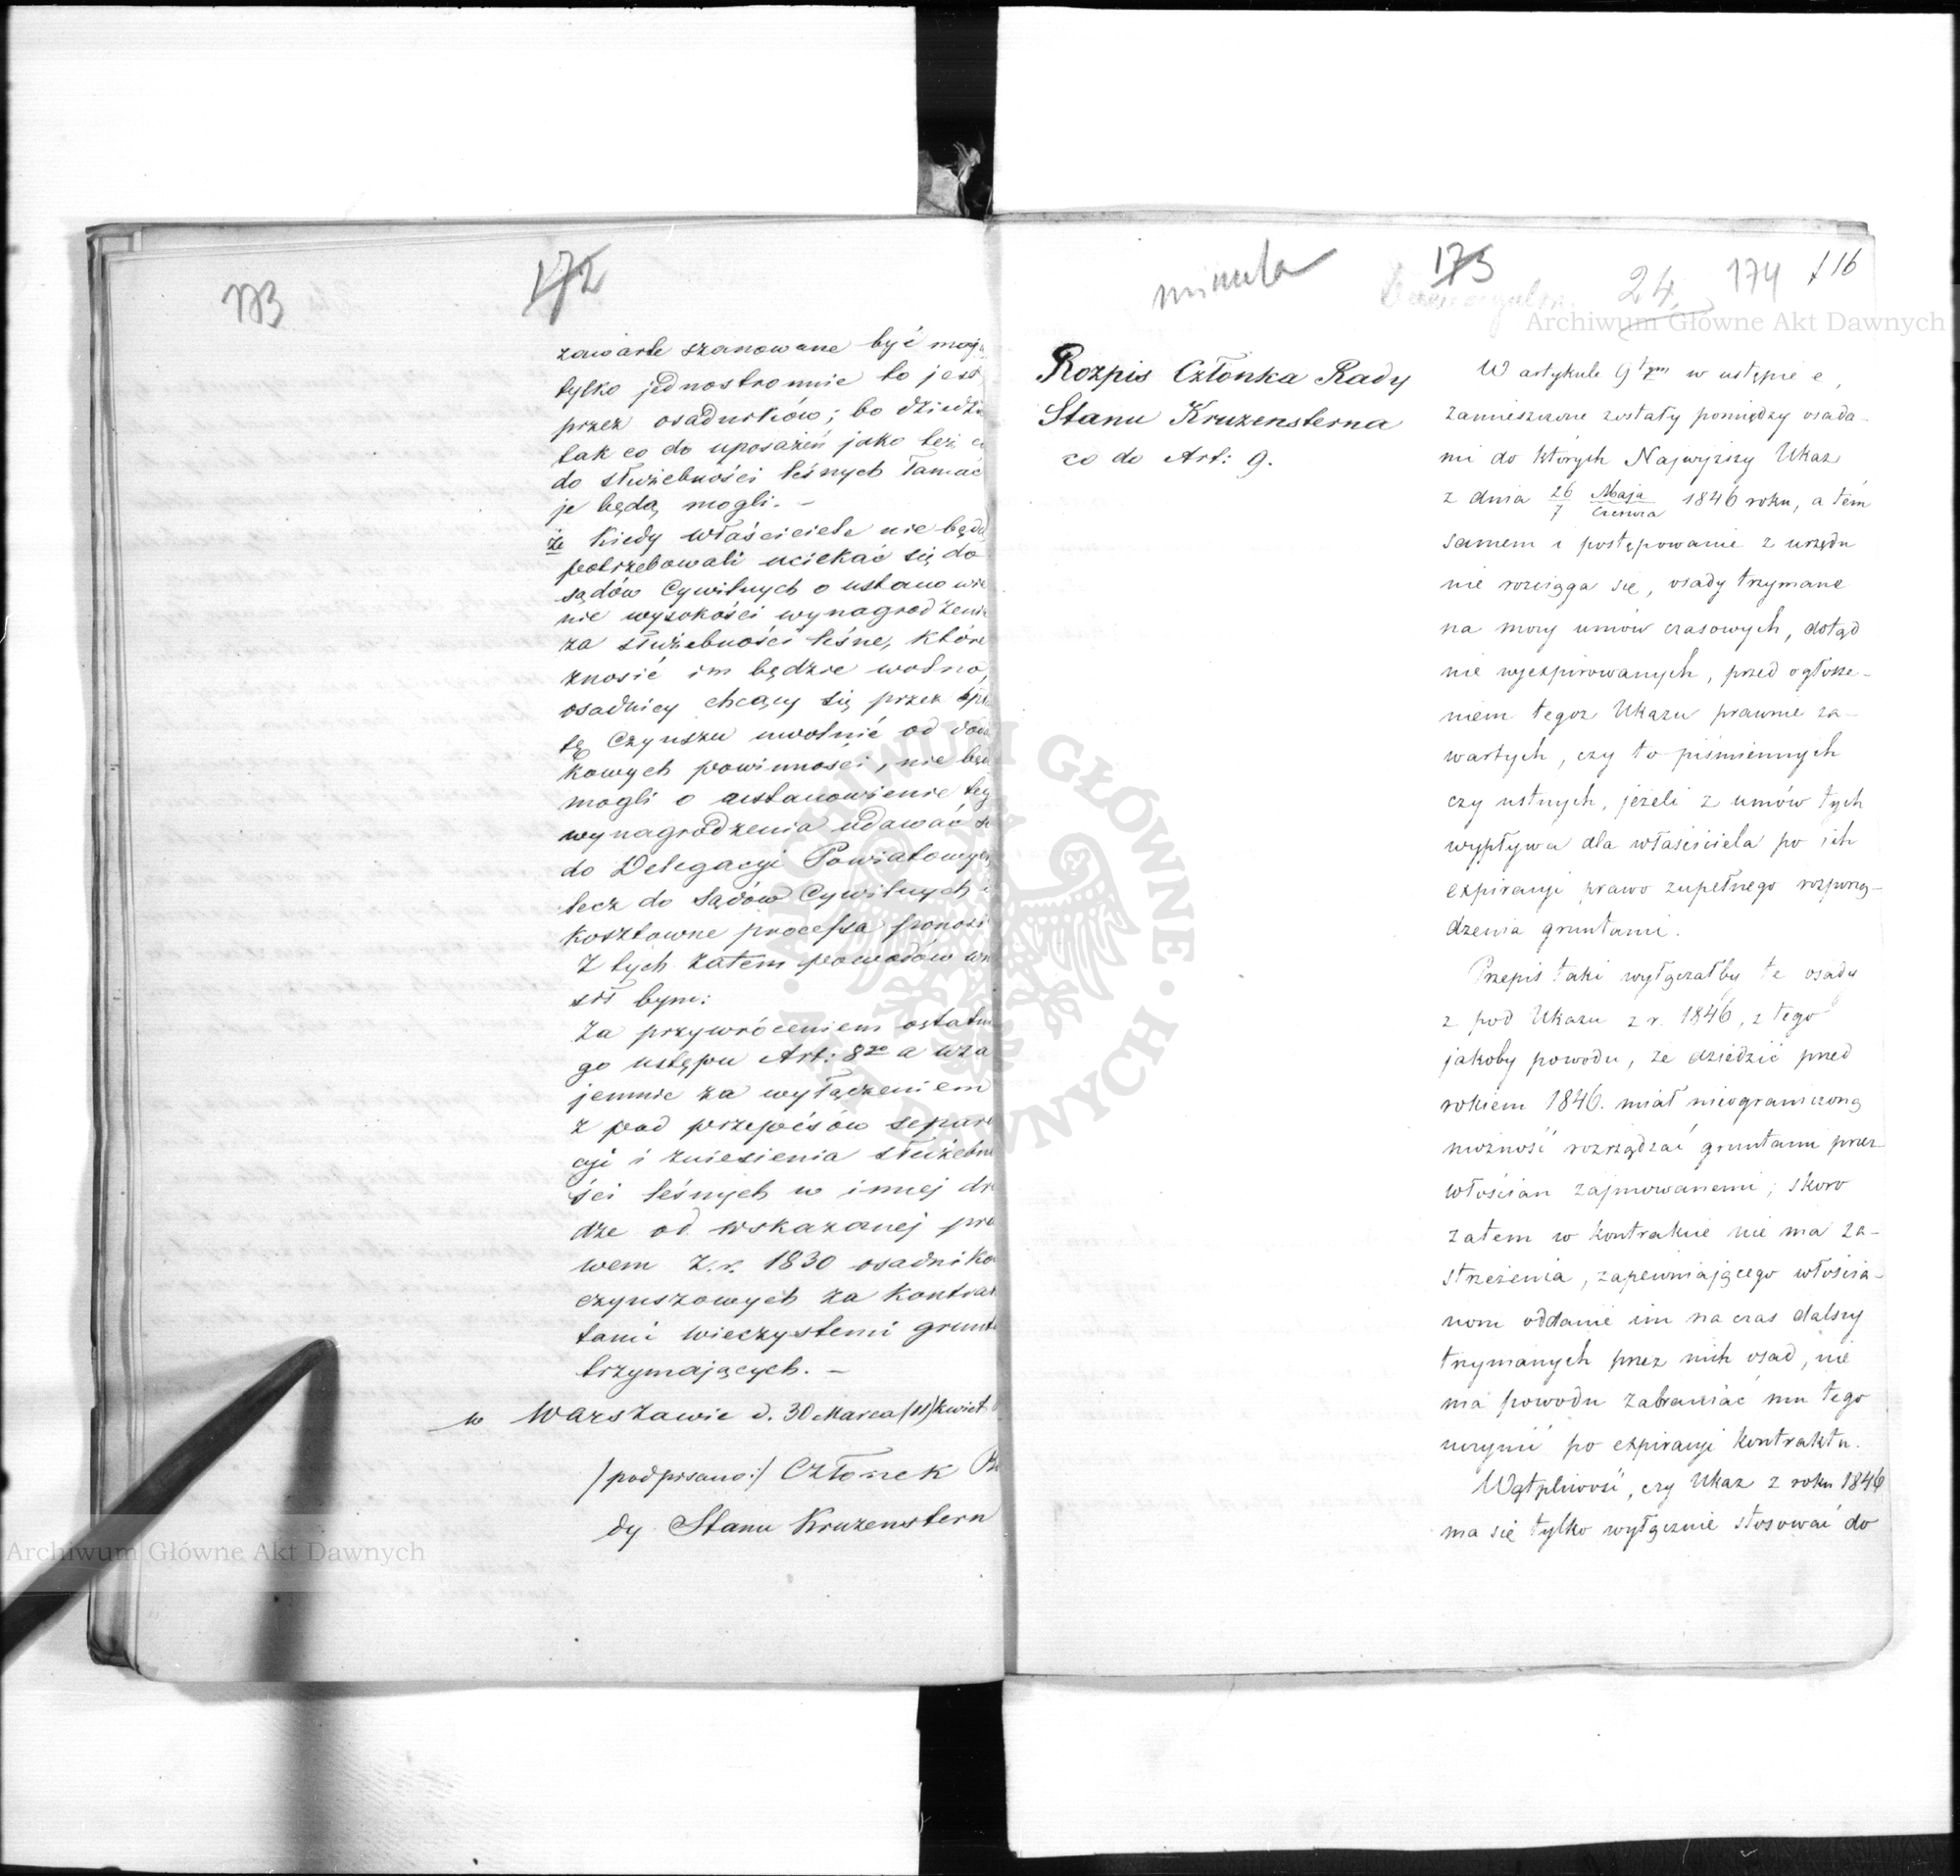 173
172
zawarte szanowane być mogą
tylko jednostronnie to jest
przez osadników; bo dziedzi
tak co do uposażeń jako też c
do służebności leśnych łamać
je będą mogli. –
że Kiedy właściciele nie będą
potrzebowali uciekać się do
sądów Cywilnych o ustanowie
nie wysokości wynagrodzenia
za służebności leśne, które
znosić im będzie wolno,
osadnicy chcący się przez
tę Czynszu uwolnić od
kowych powinności, nie będ
mogli o ustanowienie teg
wynagrodzenia udawać się
do Delegacyi Powiatowych,
lecz do Sądów Cywilnych i
kosztowne processa ponosi
Z tych zatem powodów wn
sił bym:
Za przywróceniem ostatn
go ustępu Art: 8go a wza
jemnie za wyłączeniem
z pod przepisów separa
cyi i zniesienia służebno
ści leśnych w innej dro
dze od wskazanej pra
wem z.r. 1830 osadników
czynszowych za Kontrak
tami wieczystemi grunta
trzymających. –
w Warszawie d. 30 Marca (11) Kwiet
/podpisano:/ Członek Ra
dy Stanu Kruzenstern
minuta
173
24.
174
116
Rozpis Członka Rady
Stanu Kruzensterna
co do Art: 9.
W artykule 9tym w ustępie e,
zamieszczone zostały pomiędzy osada-
mi do których Najwyższy Ukaz
z dnia 26 Maja / 7 Czerwca 1846 roku, a tém
samem i postępowanie z urzędu
nie rozciąga się, osady trzymane
na mocy umów czasowych, dotąd
nie wyexpirowanych, przed ogłosze-
niem tegoż Ukazu prawnie za-
wartych, czy to piśmiennych
czy ustnych, jeżeli z umów tych
wypływa dla właściciela po ich
expiracyi prawo zupełnego rozporzą-
dzenia gruntami.
Przepis taki wyłączałby te osady
z pod Ukazu z r. 1846, z tego
jakoby powodu, że dziedzic przed
rokiem 1846. miał nieograniczoną
możność rozrządzać gruntami przez
włościan zajmowanemi; skoro
zatem w kontrakcie nie ma za-
strzeżenia, zapewniającego włościa-
nom oddanie im na czas dalszy
trzymanych przez nich osad, nie
ma powodu zabraniać mu tego
uczynić po expiracyi kontraktu.
Wątpliwość, czy Ukaz z roku 1846
ma się tylko wyłącznie stosować do
Archiwum Główne Akt Dawnych
Archiwum Główne Akt Dawnych
ARCHIWUM GŁÓWNE · AKT DAWNYCH ·